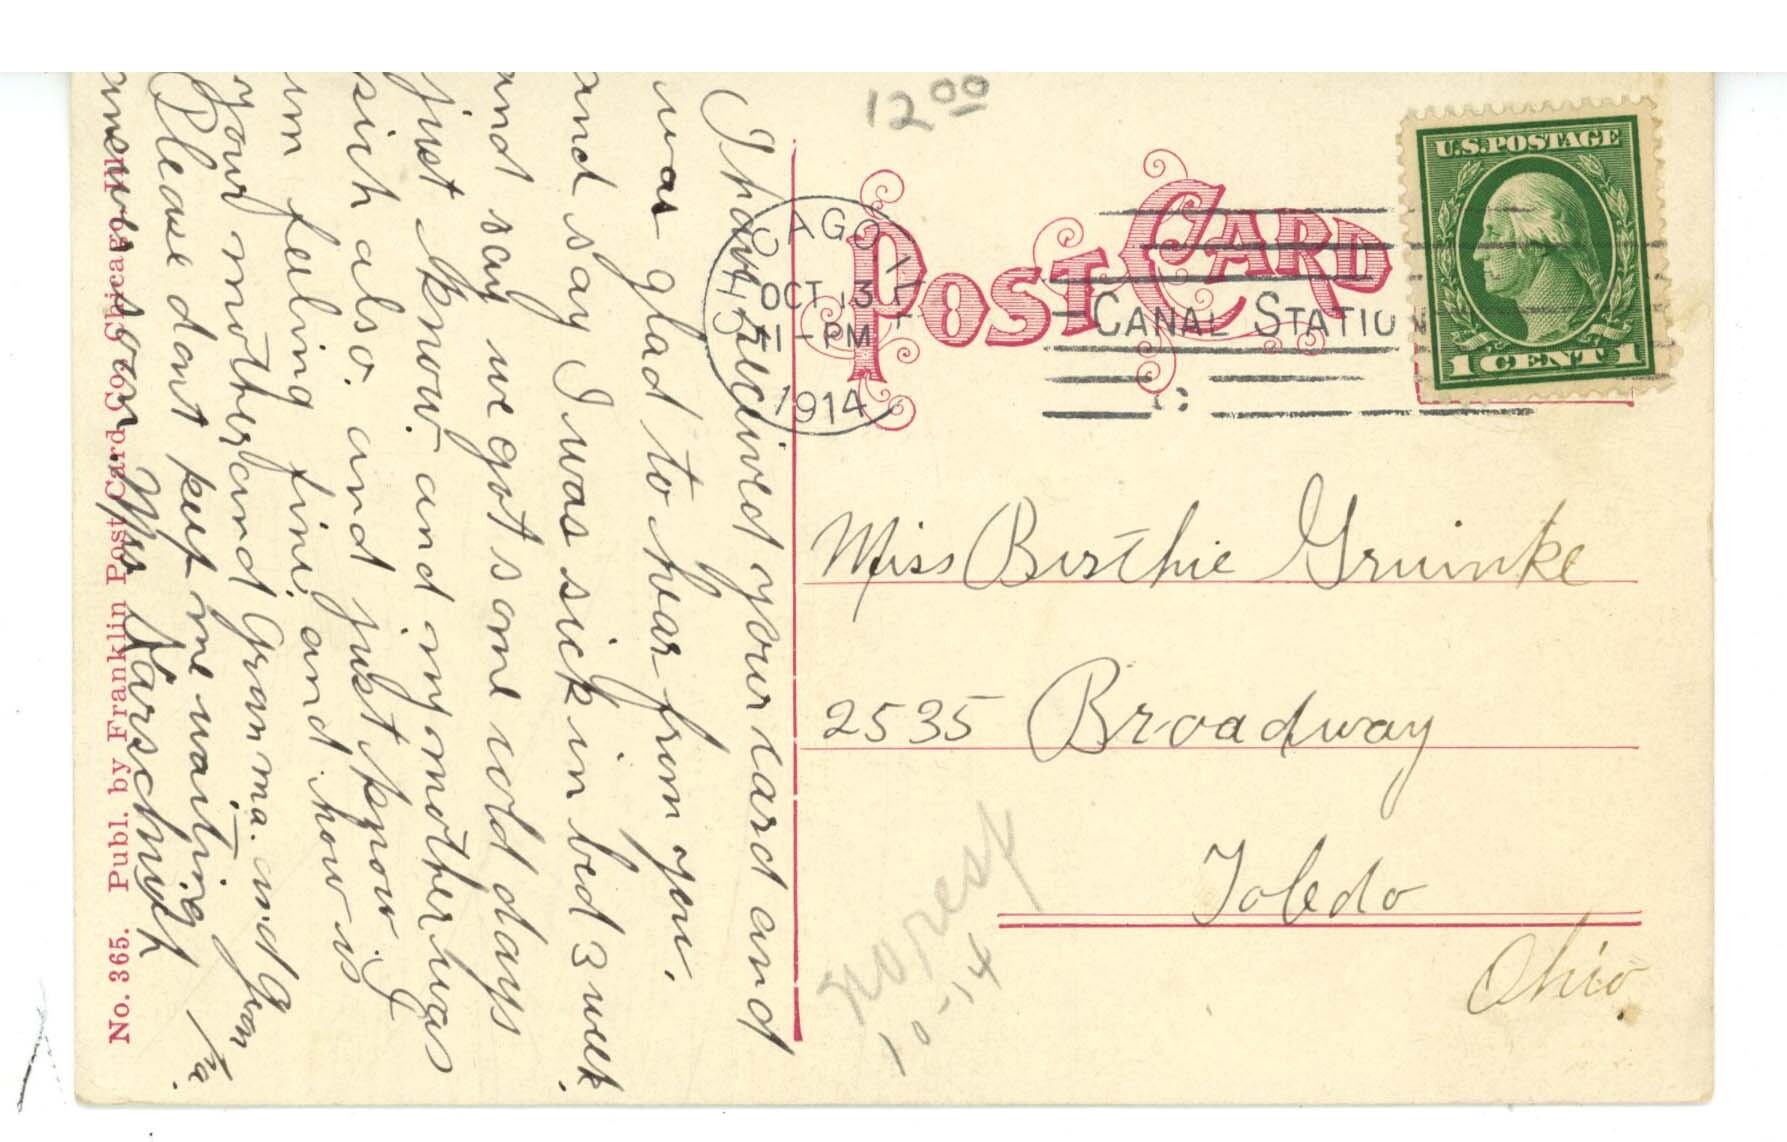 12 00
POST CARD
U.S.POSTAGE
1 CENT 1
CHICAGO, ILL.
OCT 13
11-PM
1914
CANAL STATION
C
I have received your card and
was glad to hear from you.
and say I was sick in bed 3 week.
and say we got some cold days
just know. and my mother was
sick also. and just know. I
im feeling fine. and how is
your mother and Grunma. and Gran
Pa.
Please dont keep me waiting
answer soon. Mr Karschnick
Miss Berthie Gruinke
2535 Broadway
Toledo
Ohio.
10-14
No. 365. Publ. by Franklin Post Card Co., Chicago, Ill.